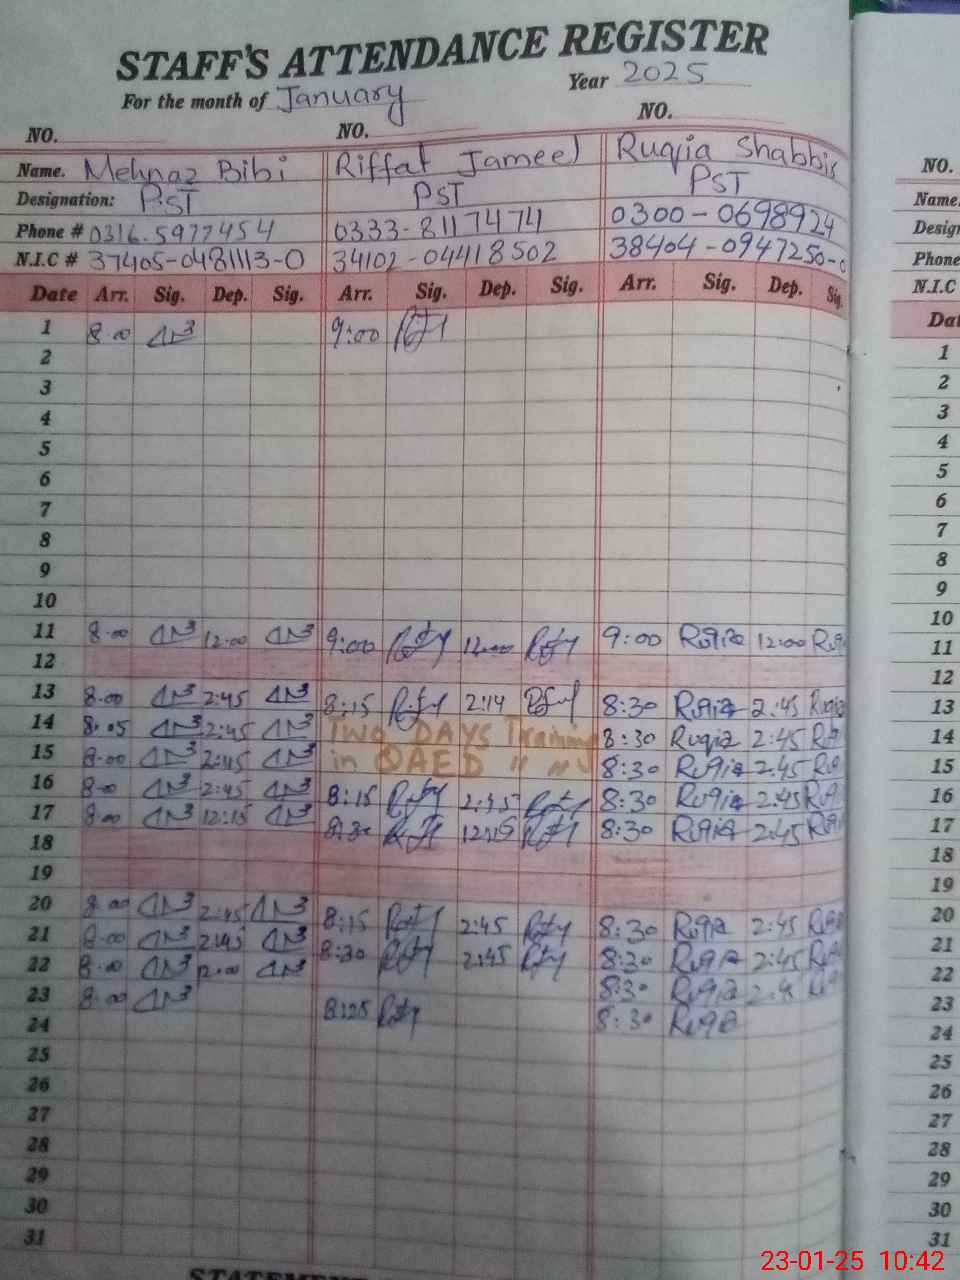 STAFF'S ATTENDANCE REGISTER
For the month of January Year 2025
NO. NO. NO.
Name. Mehnaz Bibi Riffat Jameel Ruqia Shabbir
Designation: PST PST PST
Phone # 0316-5977454 0333-8117474 0300-0698924
N.I.C # 37405-0481113-0 34102-04418502 38404-0947250-
Date Arr. Sig. Dep. Sig. Arr. Sig. Dep. Sig. Arr. Sig. Dep. Sig.
1 8.00 9:00
2
3
4
5
6
7
8
9
10
11 8.00 12:00 9:00 12:00 9:00 Ruqia 12:00
12
13 8:00 2:45 8:15 2:14 8:30 Ruqia 2:45 Ruqia
14 8:05 2:45 Two DAYS Training 8:30 Ruqia 2:45
15 8:00 2:45 in QAED " " 8:30 Ruqia 2:45
16 8:00 2:45 8:15 8:30 Ruqia 2:45
17 8:00 12:15 8:30 12:15 8:30 Ruqia 2:45
18
19
20 8:00 2:45 8:15 2:45 8:30 Ruqia 2:45
21 8:00 2:45 8:30 2:45 8:30 Ruqia 2:45
22 8:00 12:00 8:30 Ruqia
23 8:00 8:25 8:30 Ruqia
24
25
26
27
28
29
30
31
NO.
Name.
Phone
N.I.C
1
2
3
4
5
6
7
8
9
10
11
12
13
14
15
16
17
18
19
20
21
22
23
24
25
26
27
28
29
30
31
23-01-25 10:42